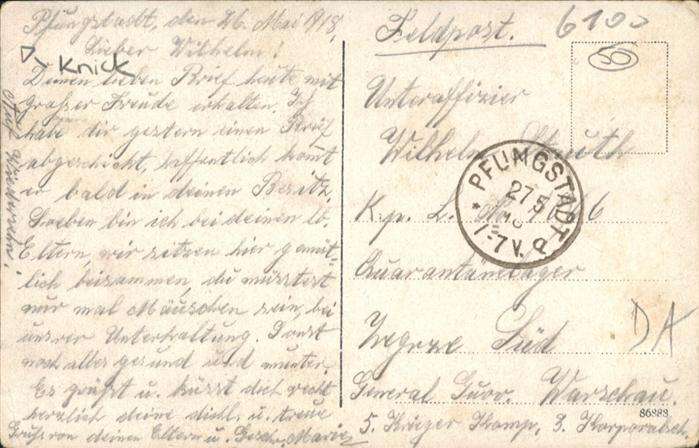 Pfungstadt, den 26. Mai 1918,
Lieber Wilhelm!
Knick
Deinen lieben Brief heute mit
großer Freude erhalten. Ich
habe dir gestern einen Brief
abgeschickt, hoffentlich kommt
er bald in deinen Besitz.
Soeben bin ich bei deinen lb.
Eltern, wir sitzen hier gemüt-
lich beisammen, du müsstest
nur mal Mäuschen sein, bei
unsrer Unterhaltung. Sonst
noch alles gesund und munter.
Es grüßt u. küsst dich recht
herzlich deine dichl. u. treue
Grüße von deinen Eltern u. Gesch. Marie
Auf Wiedersehn!
Feldpost.
6100
50
Unteroffizier
Wilhelm
PFUNGSTADT
27 5
18
1-7 V.
Kp. L.
Quarantänelager
Zegrze Süd
DA
General Guv. Warschau.
86883
5. Krieger Komp, 3. Korporalsch.